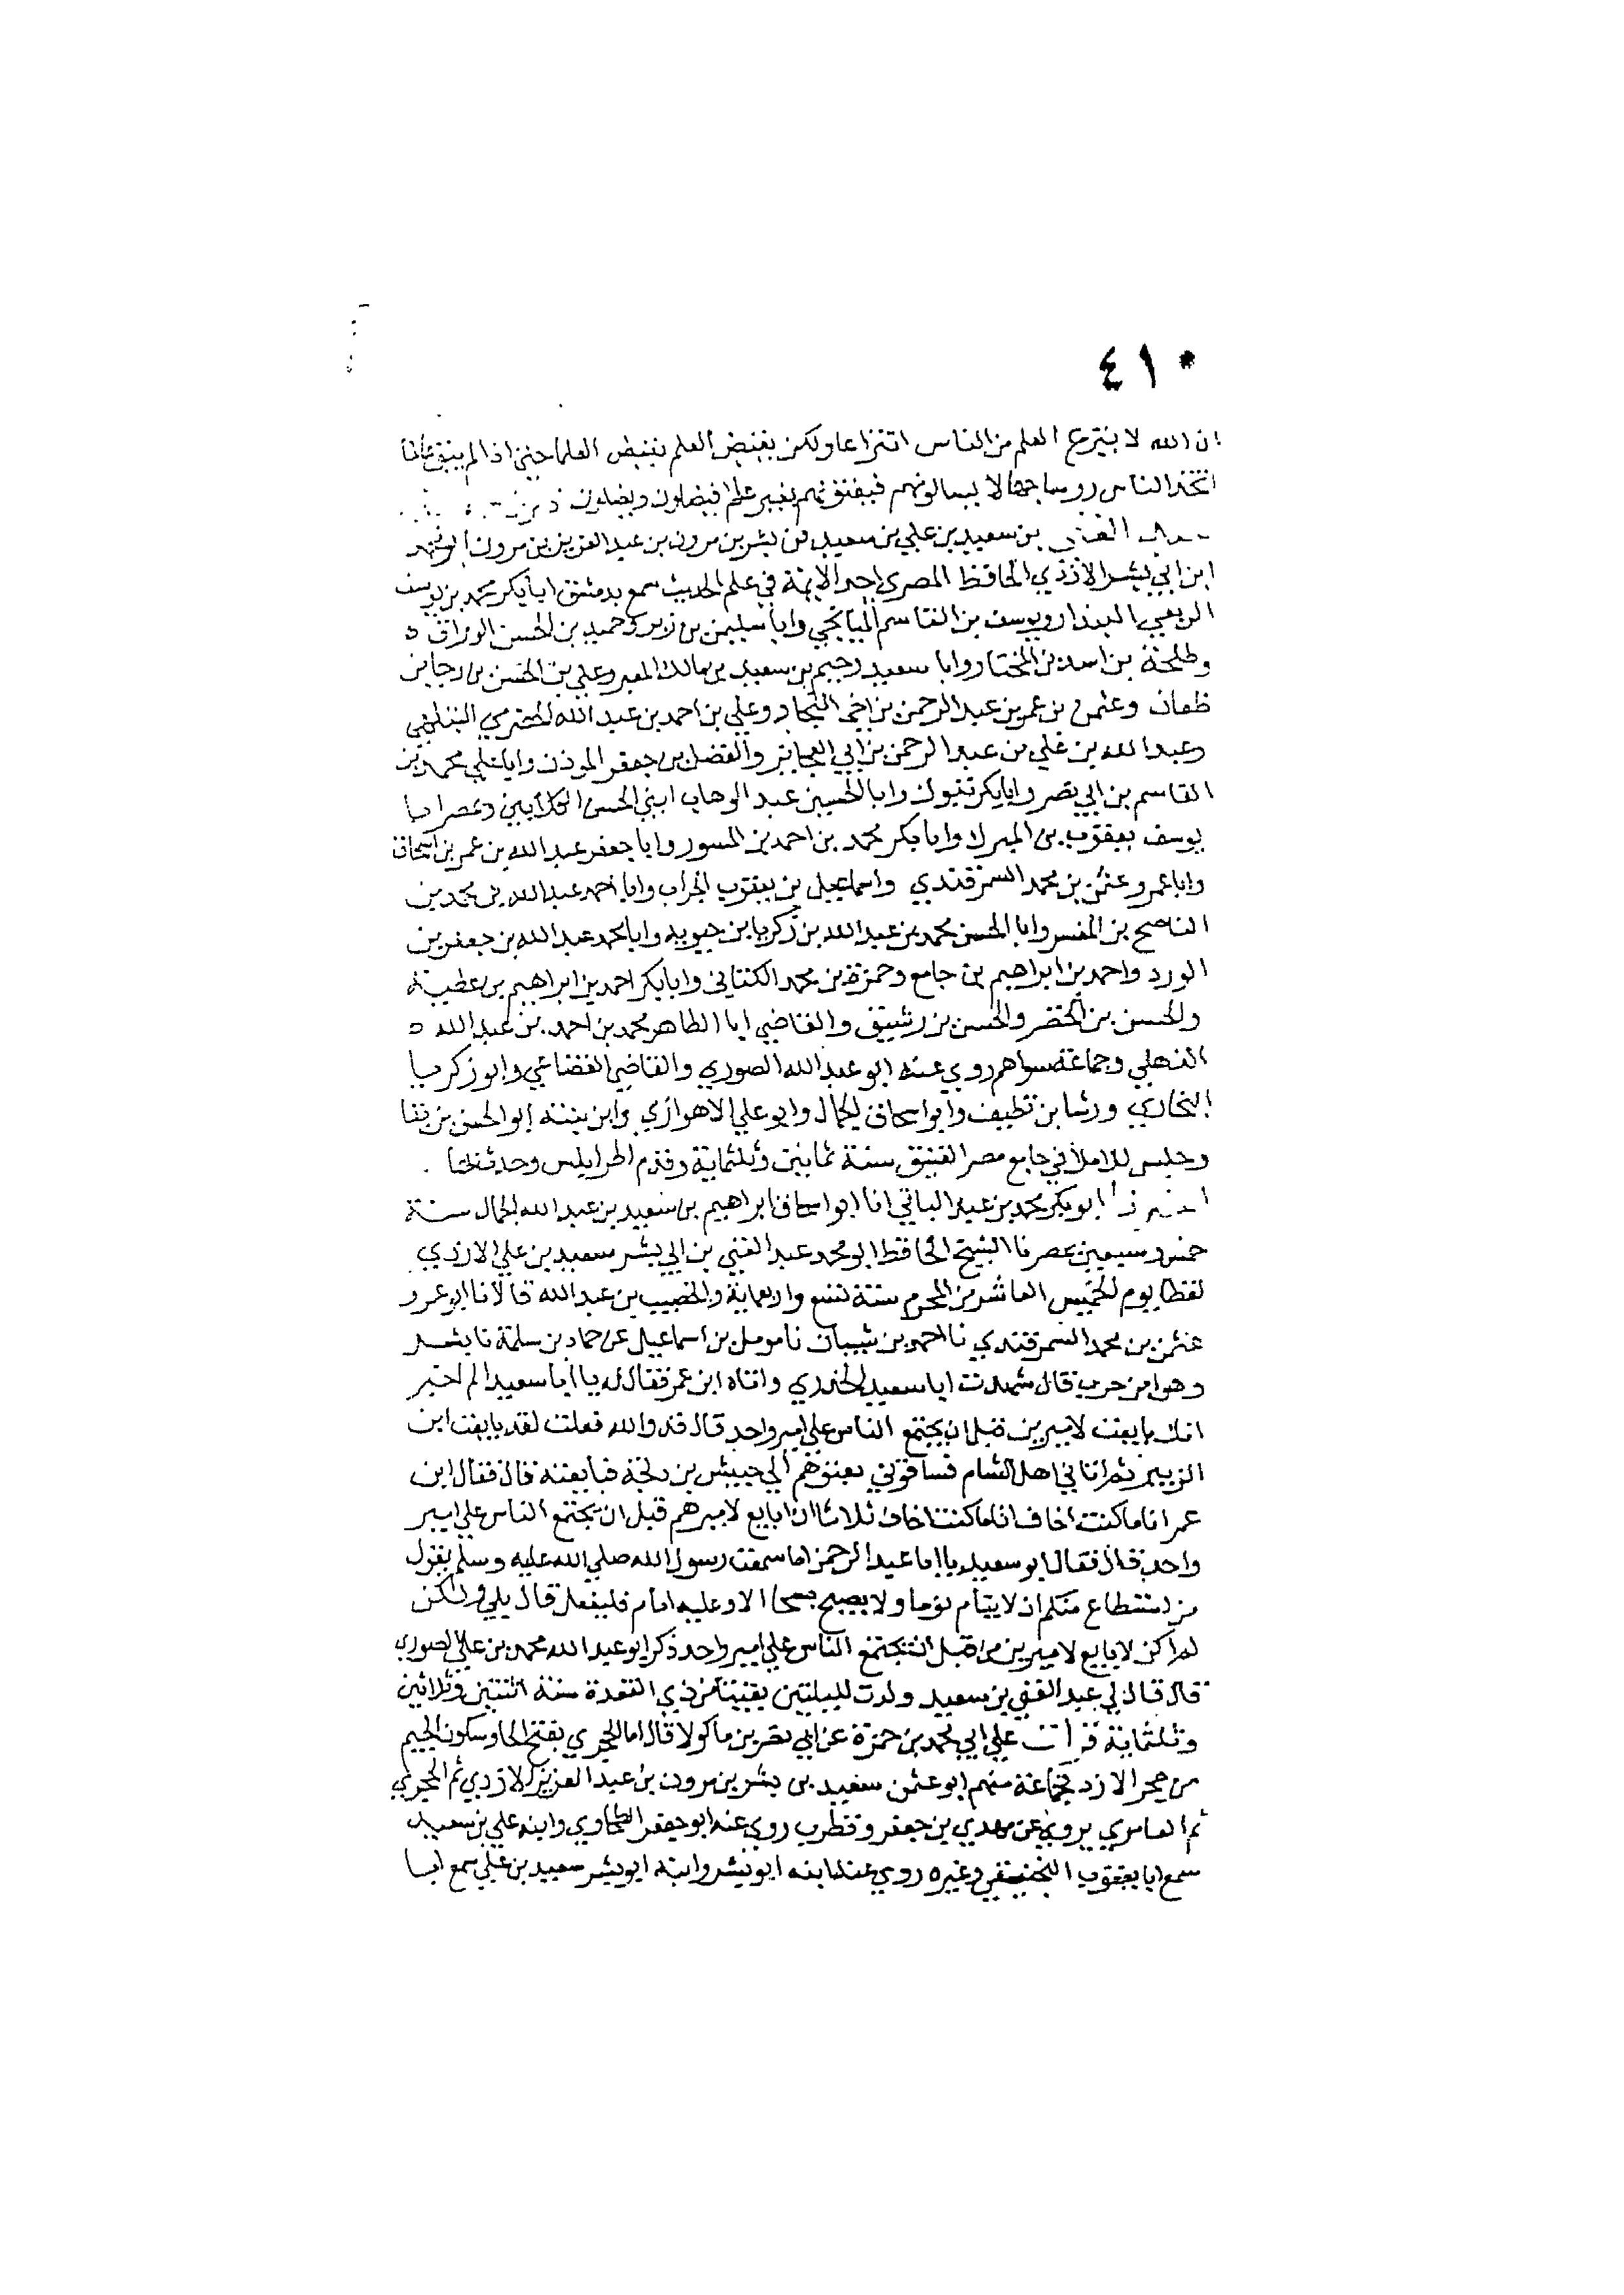 ٤١٠
ان الله لا ينتزع العلم من الناس انتزاعا ولكن يقبض العلم بقبض العلما حتى اذا لم يبق عالما
اتخذ الناس روسا جهالا يسالونهم فيفتونهم بغير علم فيضلون ويضلون
عبد الغني بن سعيد بن علي بن سعيد بن بشر بن مرون بن عبد العزيز بن مرون ابو محمد
ابن ابي بشر الازدي الحافظ المصري احد الايمة في علم الحديث سمع بدمشق ابا بكر محمد بن يوسف
الربعي البندار ويوسف بن القاسم الميانجي وابا سليمن بن زبر وحميد بن الحسن الوراق
وطلحة بن اسد بن المختار وابا سعيد رحيم بن سعيد بن مالك المعبر وعلي بن الحسن بن رجا بن
طعان وعثمن بن عمر بن عبد الرحمن بن اخي النجاد وعلي بن احمد بن عبد الله الحضرمي البتلهي
وعبد الله بن علي بن عبد الرحمن بن ابي العجائز والفضل بن جعفر الموذن وابا علي محمد بن
القاسم بن ابي نصر وابا بكر تبوك وابا الحسين عبد الوهاب ابني الحسن الكلابيين وبمصر ابا
يوسف يعقوب بن المبرك وابا بكر محمد بن احمد بن المسور وابا جعفر عبد الله بن عمر بن اسحاق
وابا عمرو عثمن بن محمد السمرقندي واسماعيل بن يعقوب الجراب وابا احمد عبد الله بن محمد بن
الناصح بن المفسر وابا الحسن محمد بن عبد الله بن زكريا بن حيويه وابا محمد عبد الله بن جعفر بن
الورد واحمد بن ابراهيم بن جامع وحمزة بن محمد الكتاني وابا بكر احمد بن ابراهيم بن عطية
والحسن بن الخضر والحسن بن رشيق والقاضي ابا الطاهر محمد بن احمد بن عبد الله
الذهلي وجماعة سواهم روي عنه ابو عبد الله الصوري والقاضي القضاعي وابو زكريا
البخاري ورشا بن نظيف وابو اسحاق الحبال وابو علي الاهوازي وابن بنته ابو الحسن بن بقا
وجلس للاملا في جامع مصر العتيق سنة ثمانين وثلثماية وقدم اطرابلس وحدث بها
اخبرنا ابو بكر محمد بن عبد الباقي انا ابو اسحاق ابراهيم بن سعيد بن عبد الله الحبال سنة
خمس وسبعين بمصر نا الشيخ الحافظ ابو محمد عبد الغني بن ابي بشر سعيد بن علي الازدي
لفظا يوم الخميس العاشر من المحرم سنة تسع واربعماية والخصيب بن عبد الله قالا نا ابو عمرو
عثمن بن محمد السمرقندي نا احمد بن شيبان نا مومل بن اسماعيل عن حماد بن سلمة نا بشر
وهو ابن حرب قال شهدت ابا سعيد الخدري واتاه ابن عمر فقال له يا ابا سعيد الم اخبر
انك بايعت لاميرين قبل ان يجتمع الناس علي امير واحد قال قد والله فعلت لقد بايعت ابن
الزبير ثم اتاني اهل الشام فساقوني بعنوهم الي حبيش بن دلجة فبايعته قال فقال ابن
عمر انا ما كنت اخاف انا ما كنت اخاف ثلاثا ان ابايع لاميرهم قبل ان يجتمع الناس علي امير
واحد قال فقال ابو سعيد يا ابا عبد الرحمن اما سمعت رسول الله صلي الله عليه وسلم يقول
من استطاع منكم ان لا ينام نوما ولا يصبح صبحا الا وعليه امام فليفعل قال بلي ولكن
لم اكن لابايع لاميرين من قبل ان يجتمع الناس علي امير واحد ذكر ابو عبد الله محمد بن علي الصوري
قال قال لي عبد الغني بن سعيد ولدت لليلتين بقيتا من ذي القعدة سنة اثنتين وثلاثين
وثلثماية قرات علي ابي محمد بن حمزة عن ابي نصر بن ماكولا قال اما الحجري بفتح الحا وسكون الجيم
من حجر الازد فجماعة منهم ابو عثمن سعيد بن بشر بن مرون بن عبد العزيز الازدي ثم الحجري
ثم العامري يروي عن مهدي بن جعفر وقطرب روي عنه ابو جعفر الطحاوي وابنه علي بن سعيد
سمع ابا يعقوب المنجنيقي وغيره روي عنه ابنه ابو بشر وابنه ابو بشر سعيد بن علي سمع ابا